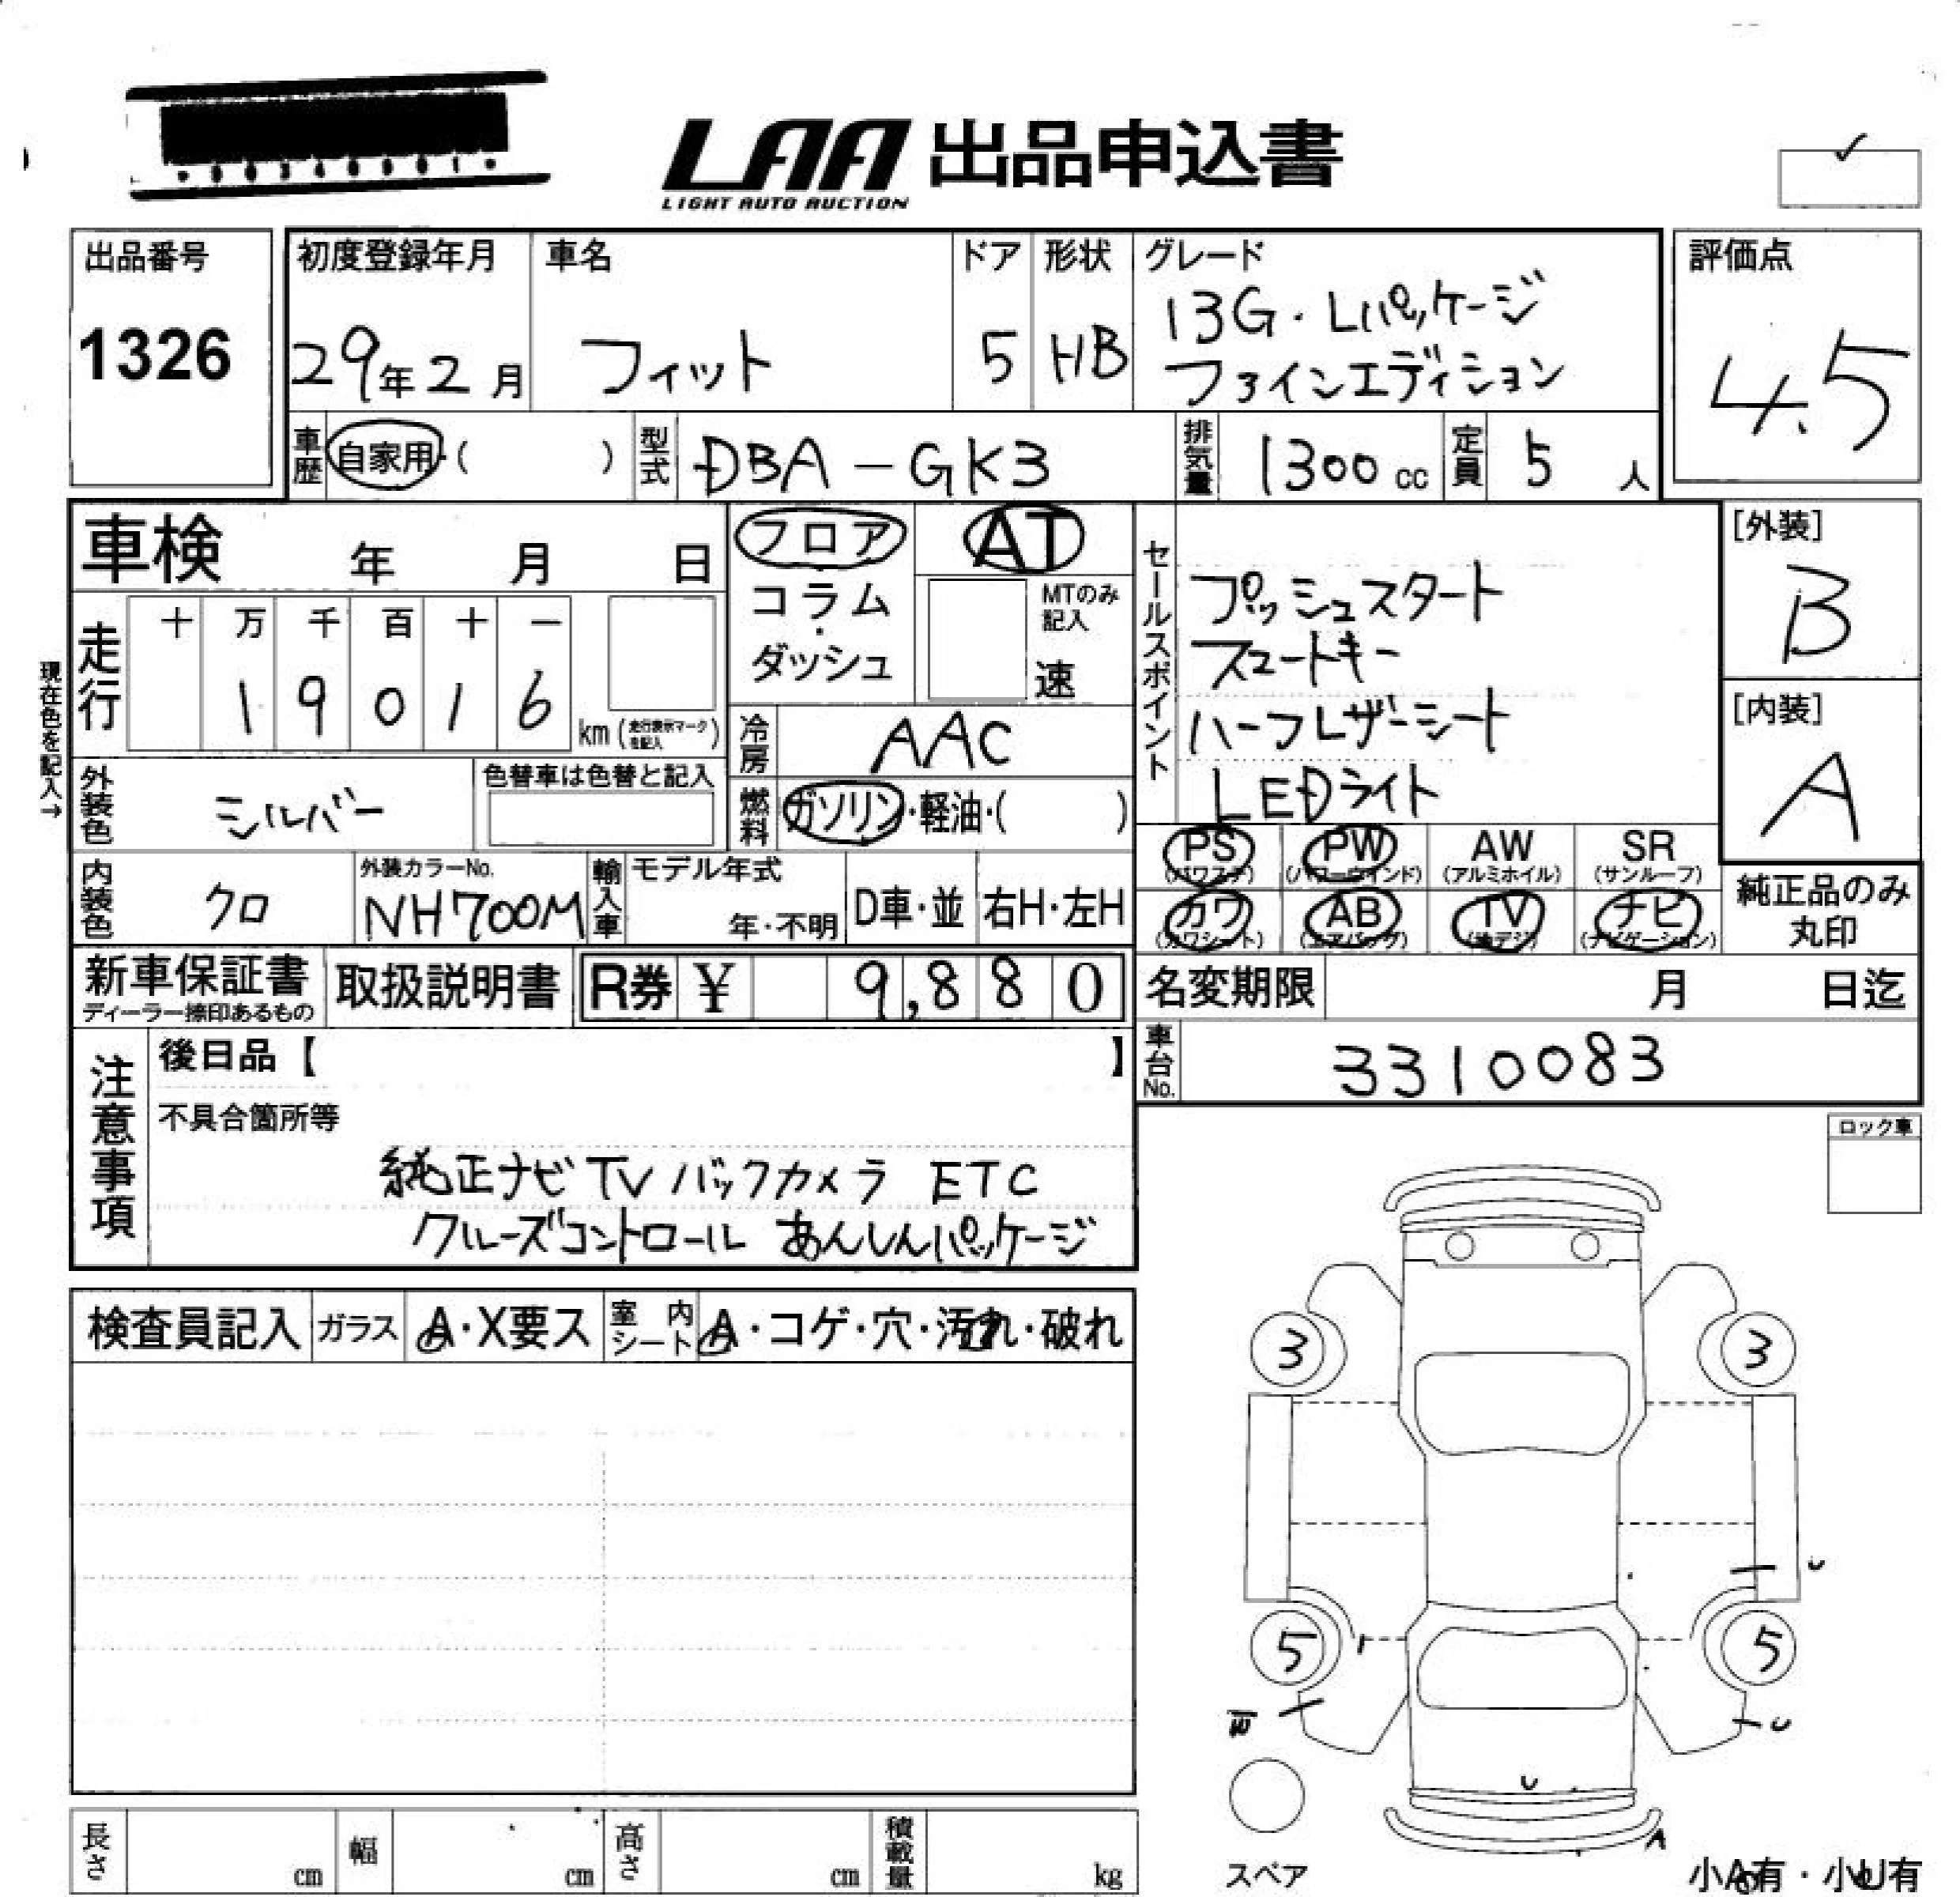 LAA 出品申込書
LIGHT AUTO AUCTION
出品番号 初度登録年月 車名 ドア 形状 グレード 評価点
13G・Lパッケージ
1326 29年2月 フィット 5 HB ファインエディション 4.5
車歴 自家用・( ) 型式 DBA-GK3 排気量 1300cc 定員 5人
車検 年 月 日 フロア AT [外装]
コラム MTのみ記入 セールスポイント プッシュスタート B
・
ダッシュ 速 スマートキー
現在色を記入→ 走行 十 万 千 百 十 一
1 9 0 1 6 km(走行表示マークを記入) 冷房 AAC ハーフレザーシート [内装]
外装色 シルバー 色替車は色替と記入 燃料 ガソリン・軽油・( ) LEDライト A
PS(パワステ) PW(パワーウインド) AW(アルミホイル) SR(サンルーフ)
内装色 クロ 外装カラーNo. NH700M 輸入車 モデル年式 年・不明 D車・並 右H・左H カワ(カワシート) AB(エアバッグ) TV(地デジ) ナビ(ナビゲーション) 純正品のみ丸印
新車保証書 取扱説明書 R券 ¥ 9,880 名変期限 月 日迄
ディーラー捺印あるもの
注意事項 後日品【 】 車台No. 3310083
不具合箇所等
純正ナビTVバックカメラ ETC
クルーズコントロール あんしんパッケージ
ロック車
検査員記入 ガラス A・X要ス 室内シート A・コゲ・穴・汚れ・破れ
3 3
U
5 5
U
U
A
スペア
小A有・小U有
長さ cm 幅 cm 高さ cm 積載量 kg